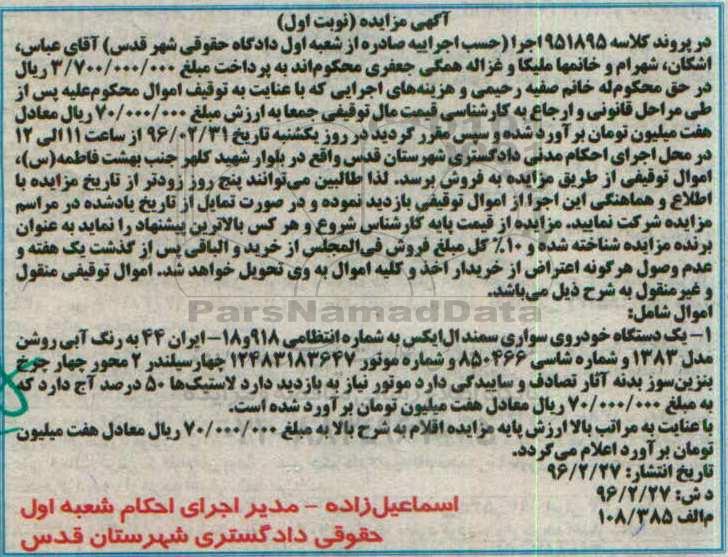 آگهی مزایده (نوبت اول)
در پروند کلاسه ۹۵۱۸۹۵ اجرا (حسب اجراییه صادره از شعبه اول دادگاه حقوقی شهر قدس) آقای عباس،
اشکان، شهرام و خانمها ملیکا و غزاله همگی جعفری محکوم‌اند به پرداخت مبلغ ۳/۷۰۰/۰۰۰/۰۰۰ ریال
در حق محکوم‌له خانم صفیه رحیمی و هزینه‌های اجرایی که با عنایت به توقیف اموال محکوم‌علیه پس از
طی مراحل قانونی و ارجاع به کارشناسی قیمت مال توقیفی جمعا به ارزش مبلغ ۷۰/۰۰۰/۰۰۰ ریال معادل
هفت میلیون تومان برآورد شده و سپس مقرر گردید در روز یکشنبه تاریخ ۹۶/۰۲/۳۱ از ساعت ۱۱ الی ۱۲
در محل اجرای احکام مدنی دادگستری شهرستان قدس واقع در بلوار شهید کلهر جنب بهشت فاطمه(س)،
اموال توقیفی از طریق مزایده به فروش برسد. لذا طالبین می‌توانند پنج روز زودتر از تاریخ مزایده با
اطلاع و هماهنگی این اجرا از اموال توقیفی بازدید نموده و در صورت تمایل از تاریخ یادشده در مراسم
مزایده شرکت نمایید. مزایده از قیمت پایه کارشناس شروع و هر کس بالاترین پیشنهاد را نماید به عنوان
برنده مزایده شناخته شده و ۱۰٪ کل مبلغ فروش فی‌المجلس از خرید و الباقی پس از گذشت یک هفته و
عدم وصول هرگونه اعتراض از خریدار اخذ و کلیه اموال به وی تحویل خواهد شد. اموال توقیفی منقول
و غیرمنقول به شرح ذیل می‌باشد.
اموال شامل:
ParsNamadData
۱- یک دستگاه خودروی سواری سمند ال‌ایکس به شماره انتظامی ۹۱۸و۱۸- ایران ۴۴ به رنگ آبی روشن
مدل ۱۳۸۳ و شماره شاسی ۸۵۰۴۶۶ و شماره موتور ۱۲۴۸۳۱۸۳۶۴۷ چهارسیلندر ۲ محور چهار چرخ
بنزین‌سوز بدنه آثار تصادف و ساییدگی دارد موتور نیاز به بازدید دارد لاستیک‌ها ۵۰ درصد آج دارد که
به مبلغ ۷۰/۰۰۰/۰۰۰ ریال معادل هفت میلیون تومان برآورد شده است.
با عنایت به مراتب بالا ارزش پایه مزایده اقلام به شرح بالا به مبلغ ۷۰/۰۰۰/۰۰۰ ریال معادل هفت میلیون
تومان برآورد اعلام می‌گردد.
تاریخ انتشار: ۹۶/۲/۲۷
د ش: ۹۶/۲/۲۷
م‌الف ۱۰۸/۳۸۵
اسماعیل‌زاده - مدیر اجرای احکام شعبه اول
حقوقی دادگستری شهرستان قدس